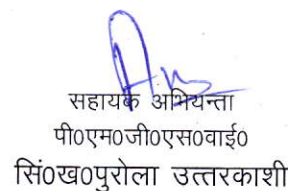 सहायक अभियन्ता
पी०एम०जी०एस०वाई०
सिं०ख०पुरोला उत्तरकाशी